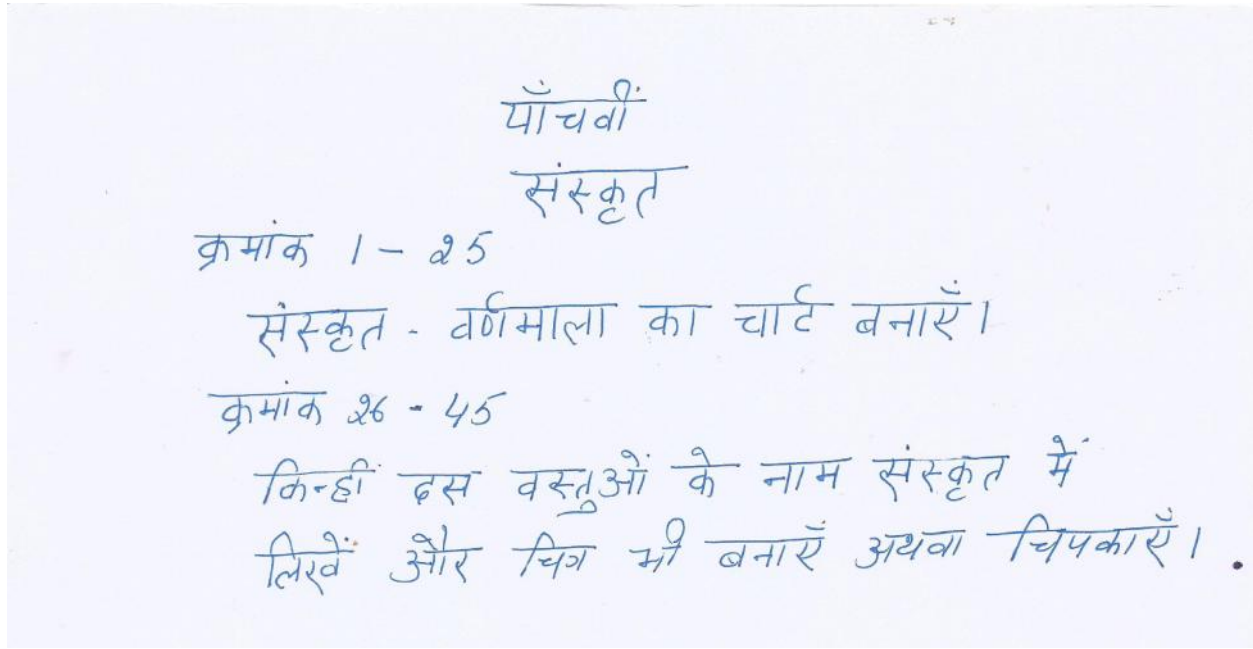 पाँचवीं
संस्कृत
क्रमांक 1 - 25
संस्कृत - वर्णमाला का चार्ट बनाएँ।
क्रमांक 26 - 45
किन्हीं दस वस्तुओं के नाम संस्कृत में
लिखें और चित्र भी बनाएँ अथवा चिपकाएँ।